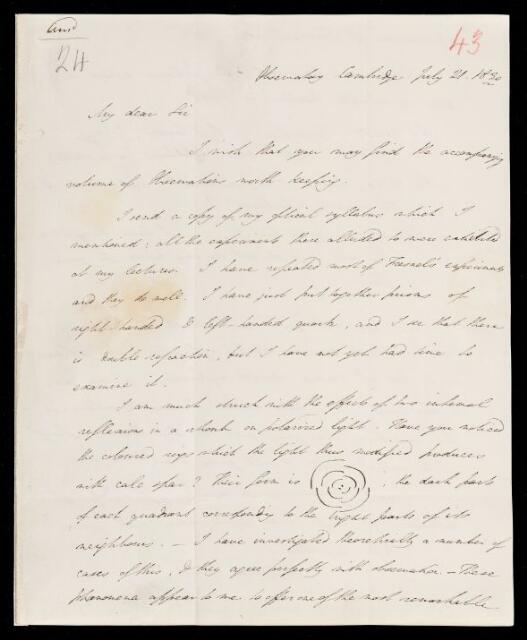 Ansd
24
43
Observatory Cambridge July 21. 1830
My dear Sir
I wish that you may find the accompanying
volume of Observations worth keeping.
I send a copy of my optical syllabus which I
mentioned; all the experiments there alluded to were exhibited
at my lectures. I have repeated most of Fresnel's experiments
and they do well. I have just put together prisms of
right-handed & left-handed quartz, and I see that there
is double refraction, but I have not yet had time to
examine it.
I am much struck with the effects of two internal
reflexions in a rhomb on polarized light. Have you noticed
the coloured rings which the light thus modified produces
with calc spar? Their form is , the dark parts
of each quadrant corresponding to the bright parts of its
neighbours. — I have investigated theoretically a number of
cases of this, & they agree perfectly with observation. — These
phænomena appear to me to offer one of the most remarkable